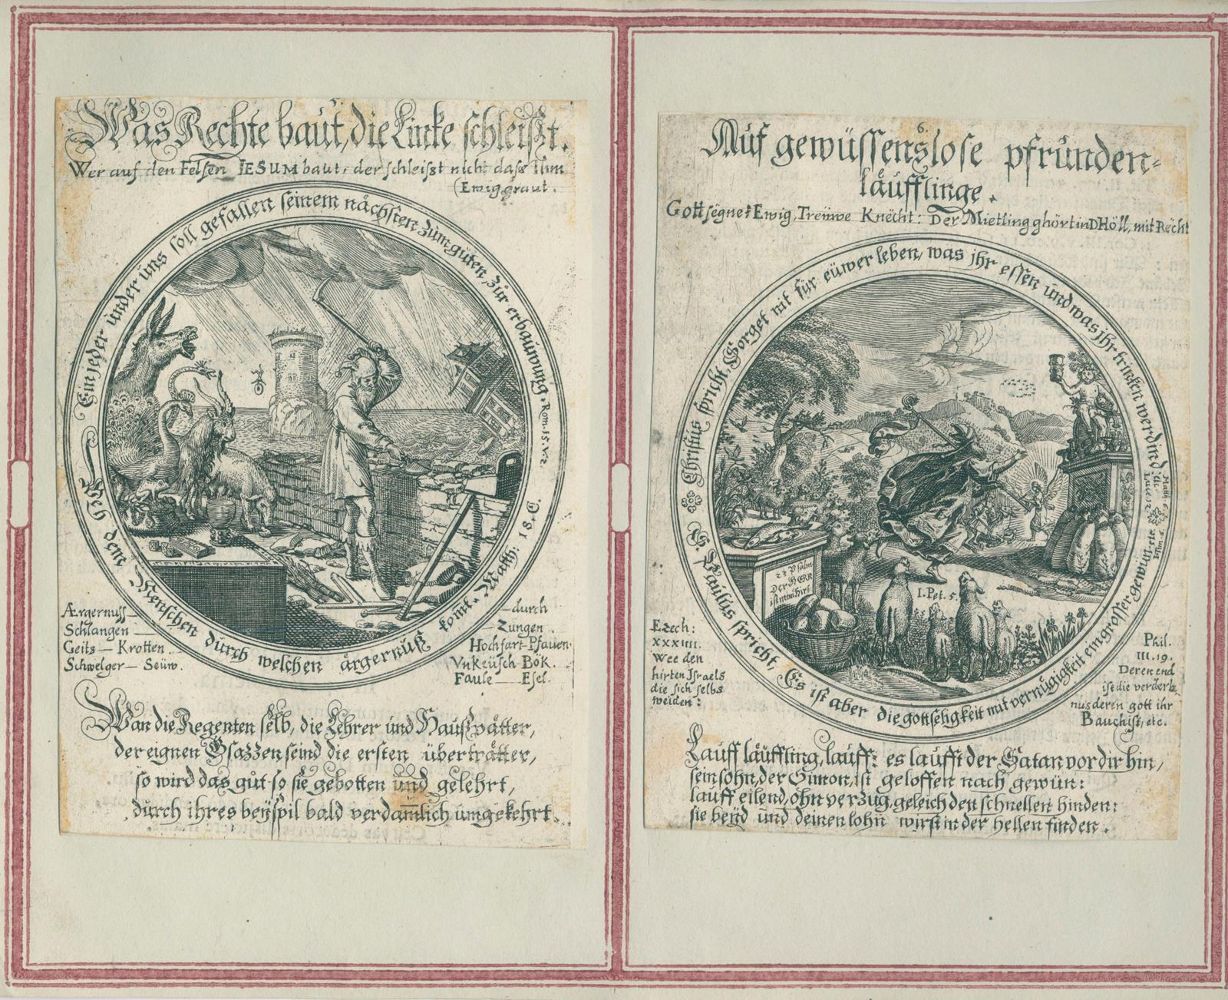 Was Rechte baut, die Linke schleißt.
Wer auf den Felsen IESUM baut: der schleisst nicht dass Ihm
(Ewig graut.
Ein jeder under uns soll gefallen seinem nächsten zum guten, zur erbauwung. Rom. 15. V. 2.
Weh dem Menschen durch welchen ärgernuß komt. Matth. 18. C.
Ærgernuss — durch
Schlangen — Zungen.
Geits — Krotten. Hochfart-Pfauen
Schwelger — Seüw. Unkeüsch Bök.
Faule — Esel.
Wan die Regenten selb, die Lehrer und Haußvätter,
der eignen Gsazzen seind die ersten überträtter,
so wird das gut so sie gebotten und gelehrt,
durch ihres beyspil bald verdamlich umgekehrt.
Auf gewüssenslose pfrunden-
läufflinge.
Gott segnet Ewig, Treüwe Knecht: Der Mietling ghört in D'Höll, mit Recht
Christus spricht, Sorget nit für eüwer leben, was ihr essen und was ihr trinken werdind.
S. Paulus spricht Es ist aber die gottseligkeit mit vernügigkeit ein grosser gewün.
Psalm
der HERR
I. Pet. 5.
Ezech:
XXXIIII.
Wee den
hirten Israels
die sich selbs
weiden:
Phil.
III. 19.
Deren end
ist die verderb
nus deren gott ihr
Bauch ist, etc.
Lauff läuffling, lauff: es laufft der Satan vor dir hin,
sein sohn, der Simon, ist geloffen nach gewün:
lauff eilend, ohn verzug, geleich den schnellen hinden:
sie beyd und deinen lohn wirst in der hellen finden.